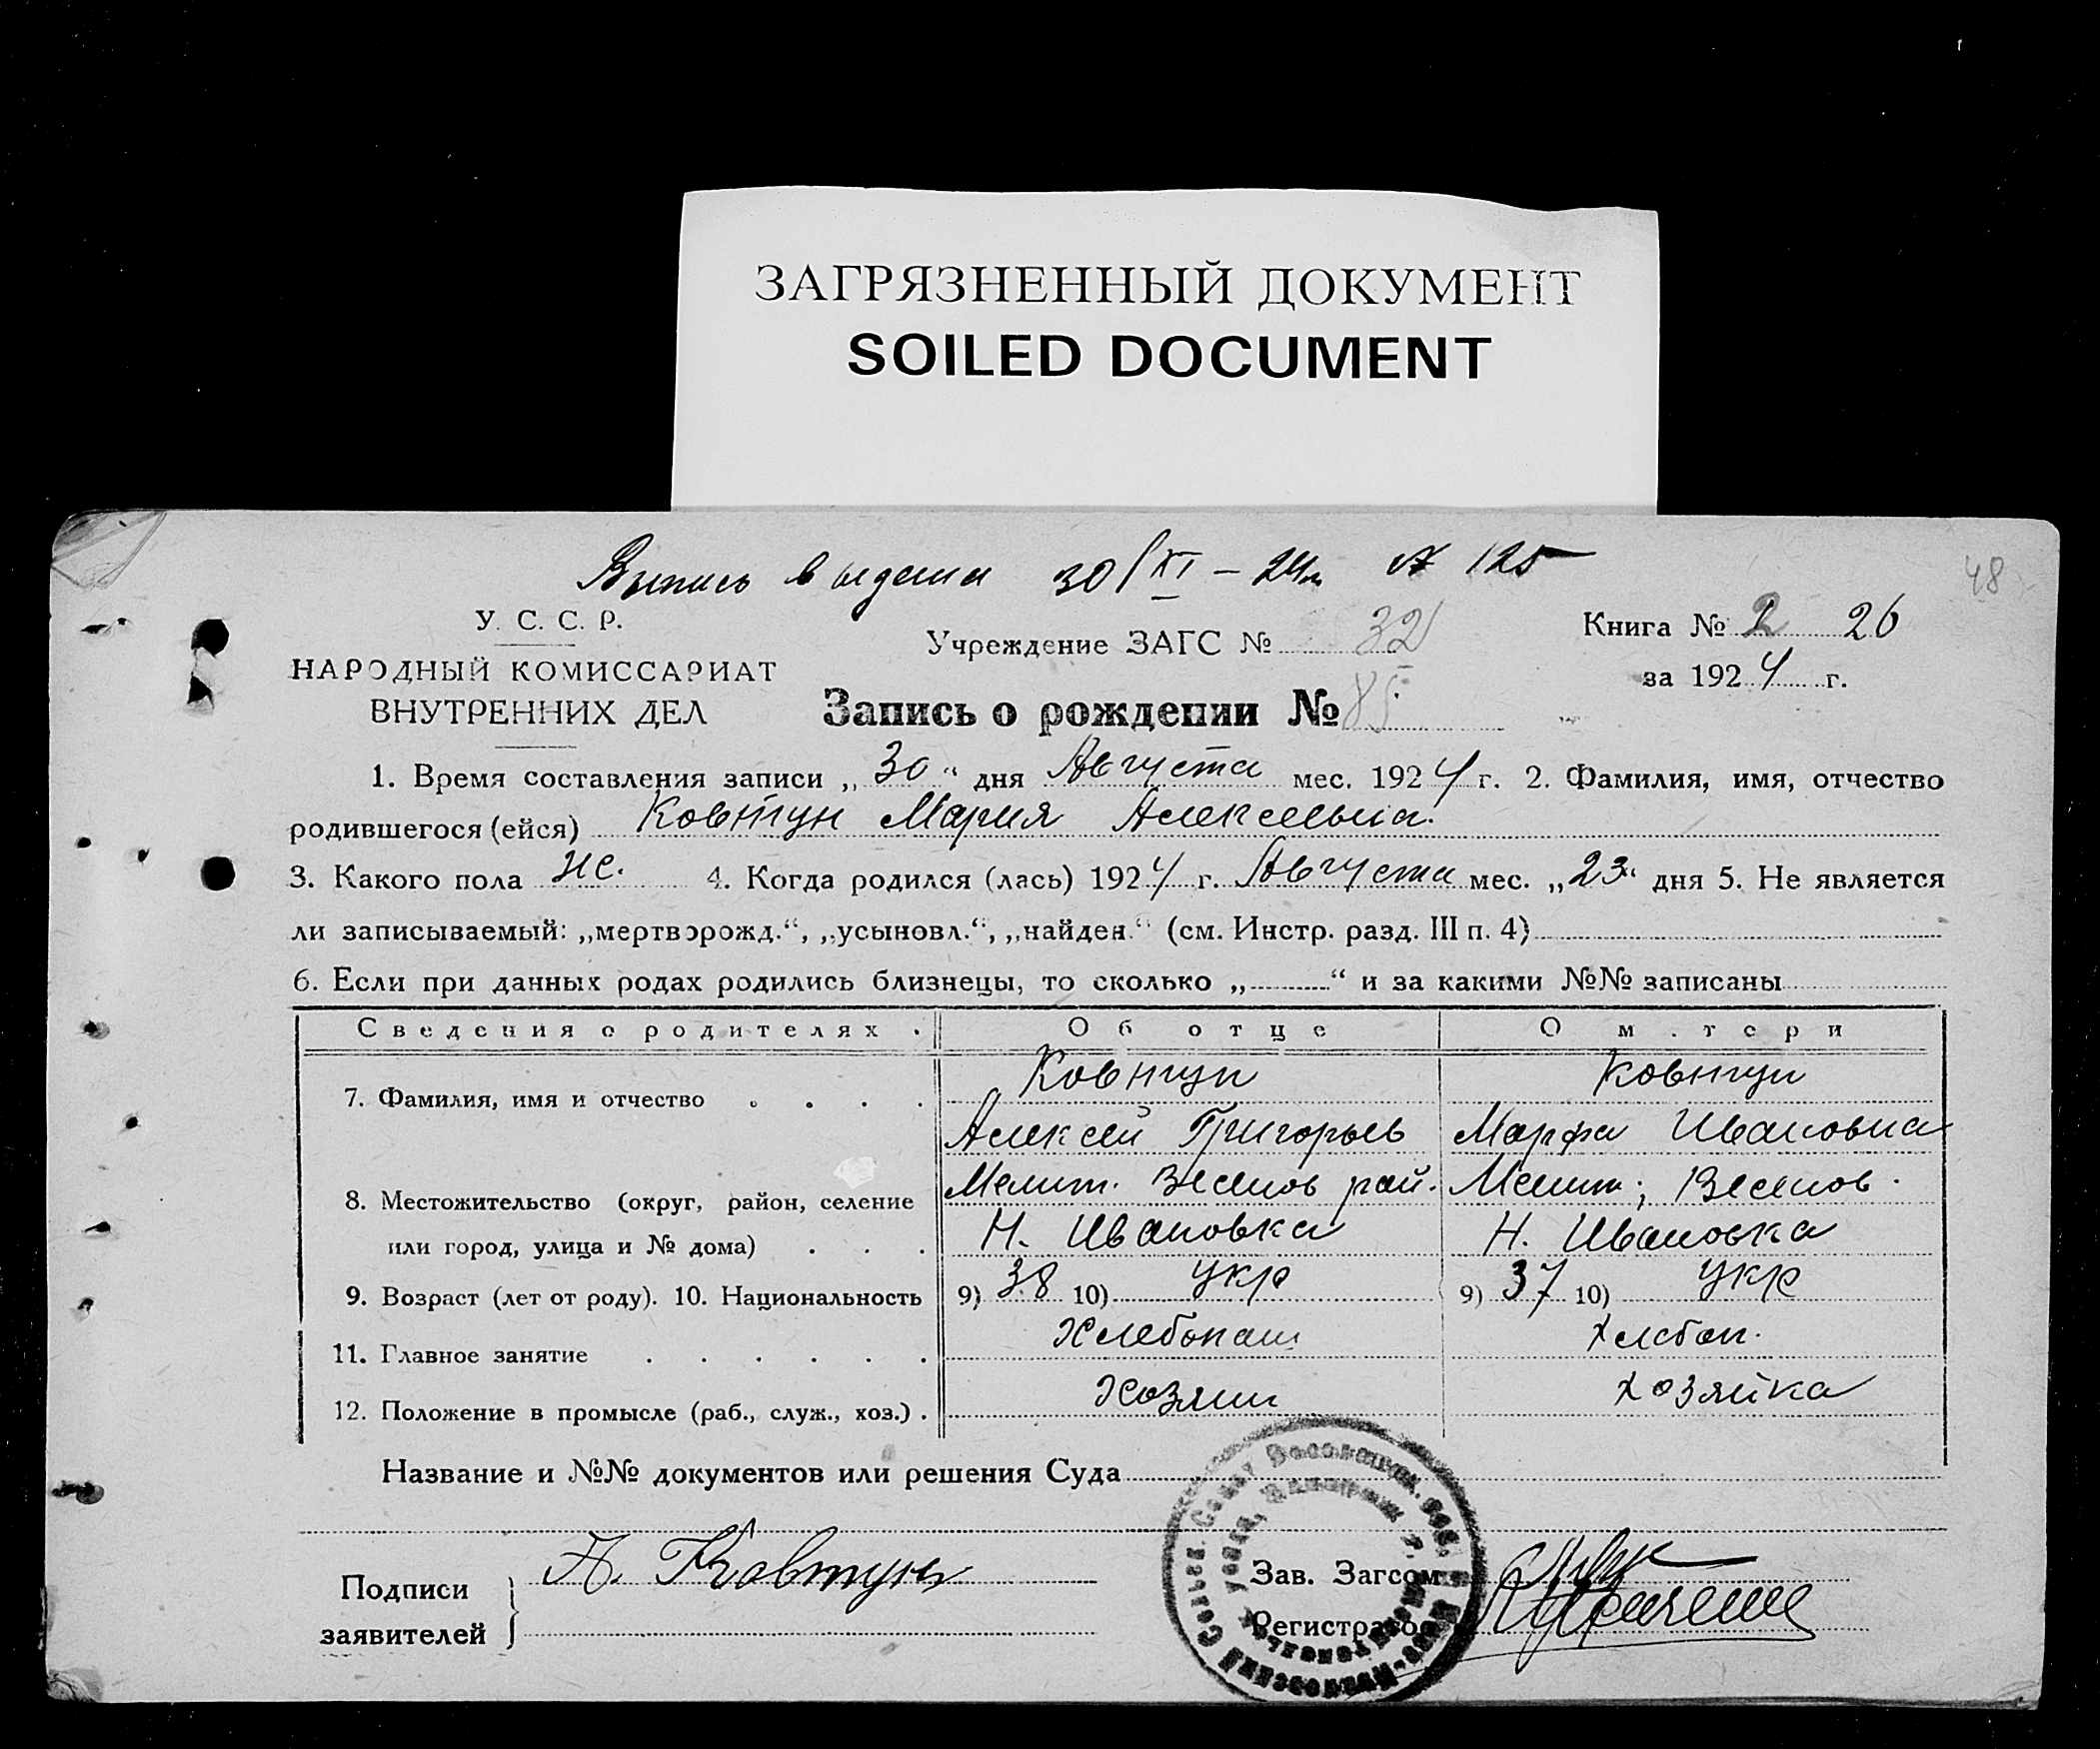 ЗАГРЯЗНЕННЫЙ ДОКУМЕНТ
SOILED DOCUMENT
Выпись выдана 30/XI – 24г. № 125
48
У. С. С. Р.
НАРОДНЫЙ КОМИССАРИАТ
ВНУТРЕННИХ ДЕЛ
Учреждение ЗАГС № 32
Книга № 2 26
за 1924 г.
Запись о рождении № 85
1. Время составления записи „30“ дня Августа мес. 1924 г. 2. Фамилия, имя, отчество
родившегося (ейся) Ковтун Мария Алексеевна.
3. Какого пола ж. 4. Когда родился (лась) 1924 г. Августа мес. „23“ дня 5. Не является
ли записываемый: „мертворожд.“, „усыновл.“, „найден.“ (см. Инстр. разд. III п. 4)
6. Если при данных родах родились близнецы, то сколько „ “ и за какими №№ записаны
Сведения о родителях. Об отце О матери
7. Фамилия, имя и отчество Ковтун Ковтун
Алексей Григорьев Марфа Ивановна
8. Местожительство (округ, район, селение Мелит. Веселов рай. Мелит; Веселов.
или город, улица и № дома) Н. Ивановка Н. Ивановка
9. Возраст (лет от роду). 10. Национальность 9) 38 10) укр 9) 37 10) укр
11. Главное занятие Хлебопаш Хлебоп.
12. Положение в промысле (раб., служ., хоз.) . Хозяин хозяйка
Название и №№ документов или решения Суда
Подписи
заявителей
А. Ковтун
Зав. Загсом
Регистратор